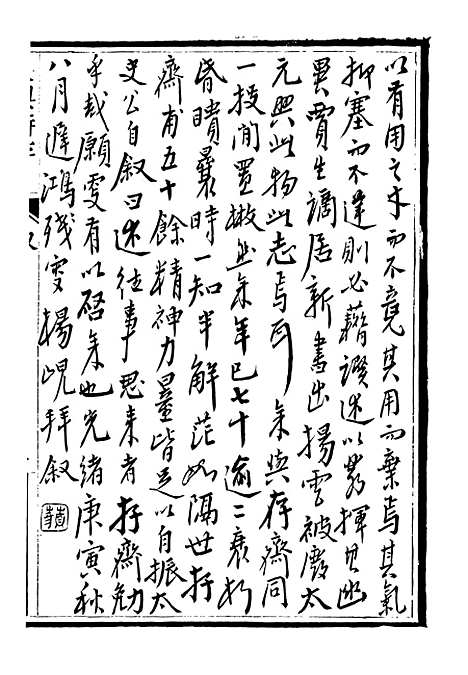 以有用之才而不竟其用而棄焉其氣
抑塞而不達則必藉譔述以發揮其幽
異賈生謫居新書出揚雲被廢太
元興此物此志焉耳余與存齋同
一投閒置散然余年已七十逾二衰朽
昏瞶曩時一知半解茫如隔世存
齋甫五十餘精神力量皆足以自振太
史公自敘曰述往事思來者存齋勉
乎哉願更有以啓余也光緒庚寅秋
八月遲鴻殘叟楊峴拜敘